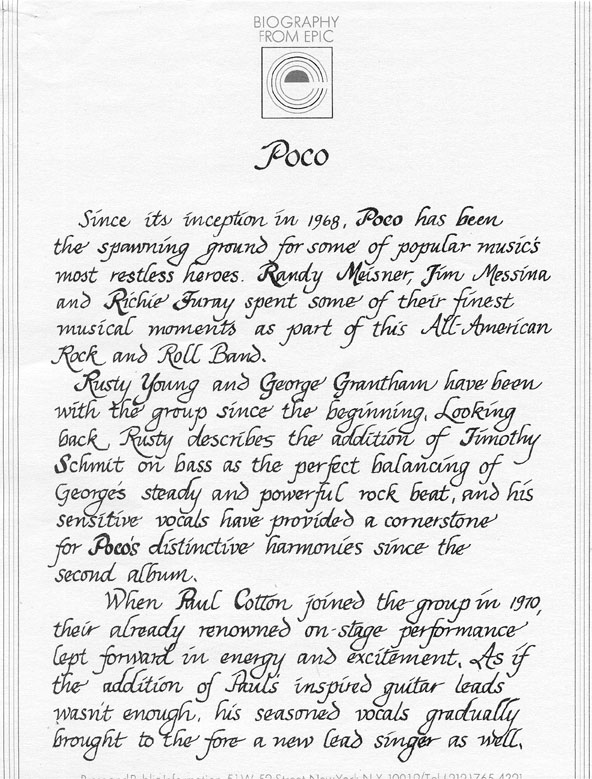 BIOGRAPHY
FROM EPIC
Poco
Since its inception in 1968, Poco has been
the spawning ground for some of popular music's
most restless heroes. Randy Meisner, Jim Messina
and Richie Furay spent some of their finest
musical moments as part of this All-American
Rock and Roll Band.
Rusty Young and George Grantham have been
with the group since the beginning. Looking
back, Rusty describes the addition of Timothy
Schmit on bass as the perfect balancing of
George's steady and powerful rock beat, and his
sensitive vocals have provided a cornerstone
for Poco's distinctive harmonies since the
second album.
When Paul Cotton joined the group in 1970,
their already renowned on-stage performance
lept forward in energy and excitement. As if
the addition of Paul's inspired guitar leads
wasn't enough, his seasoned vocals gradually
brought to the fore a new lead singer as well.